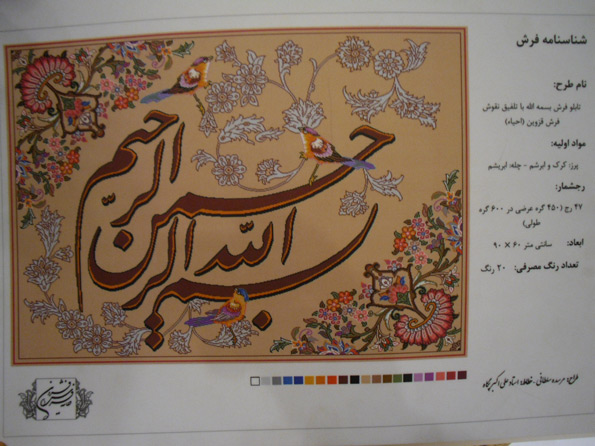 شناسنامه فرش
نام طرح:
تابلو فرش بسمه الله با تلفیق نقوش
فرش قزوین (احیاء)
مواد اولیه:
پرز: کرک و ابرشم - چله: ابریشم
رجشمار:
۴۷ رج (۴۵۰ گره عرضی در ۶۰۰ گره
طولی)
ابعاد: ۹۰ × ۶۰ سانتی متر
تعداد رنگ مصرفی: ۲۰ رنگ
بسم الله الرحمن الرحیم
طراح: مرسده سلطانی - خطاط: استاد علی اکبر